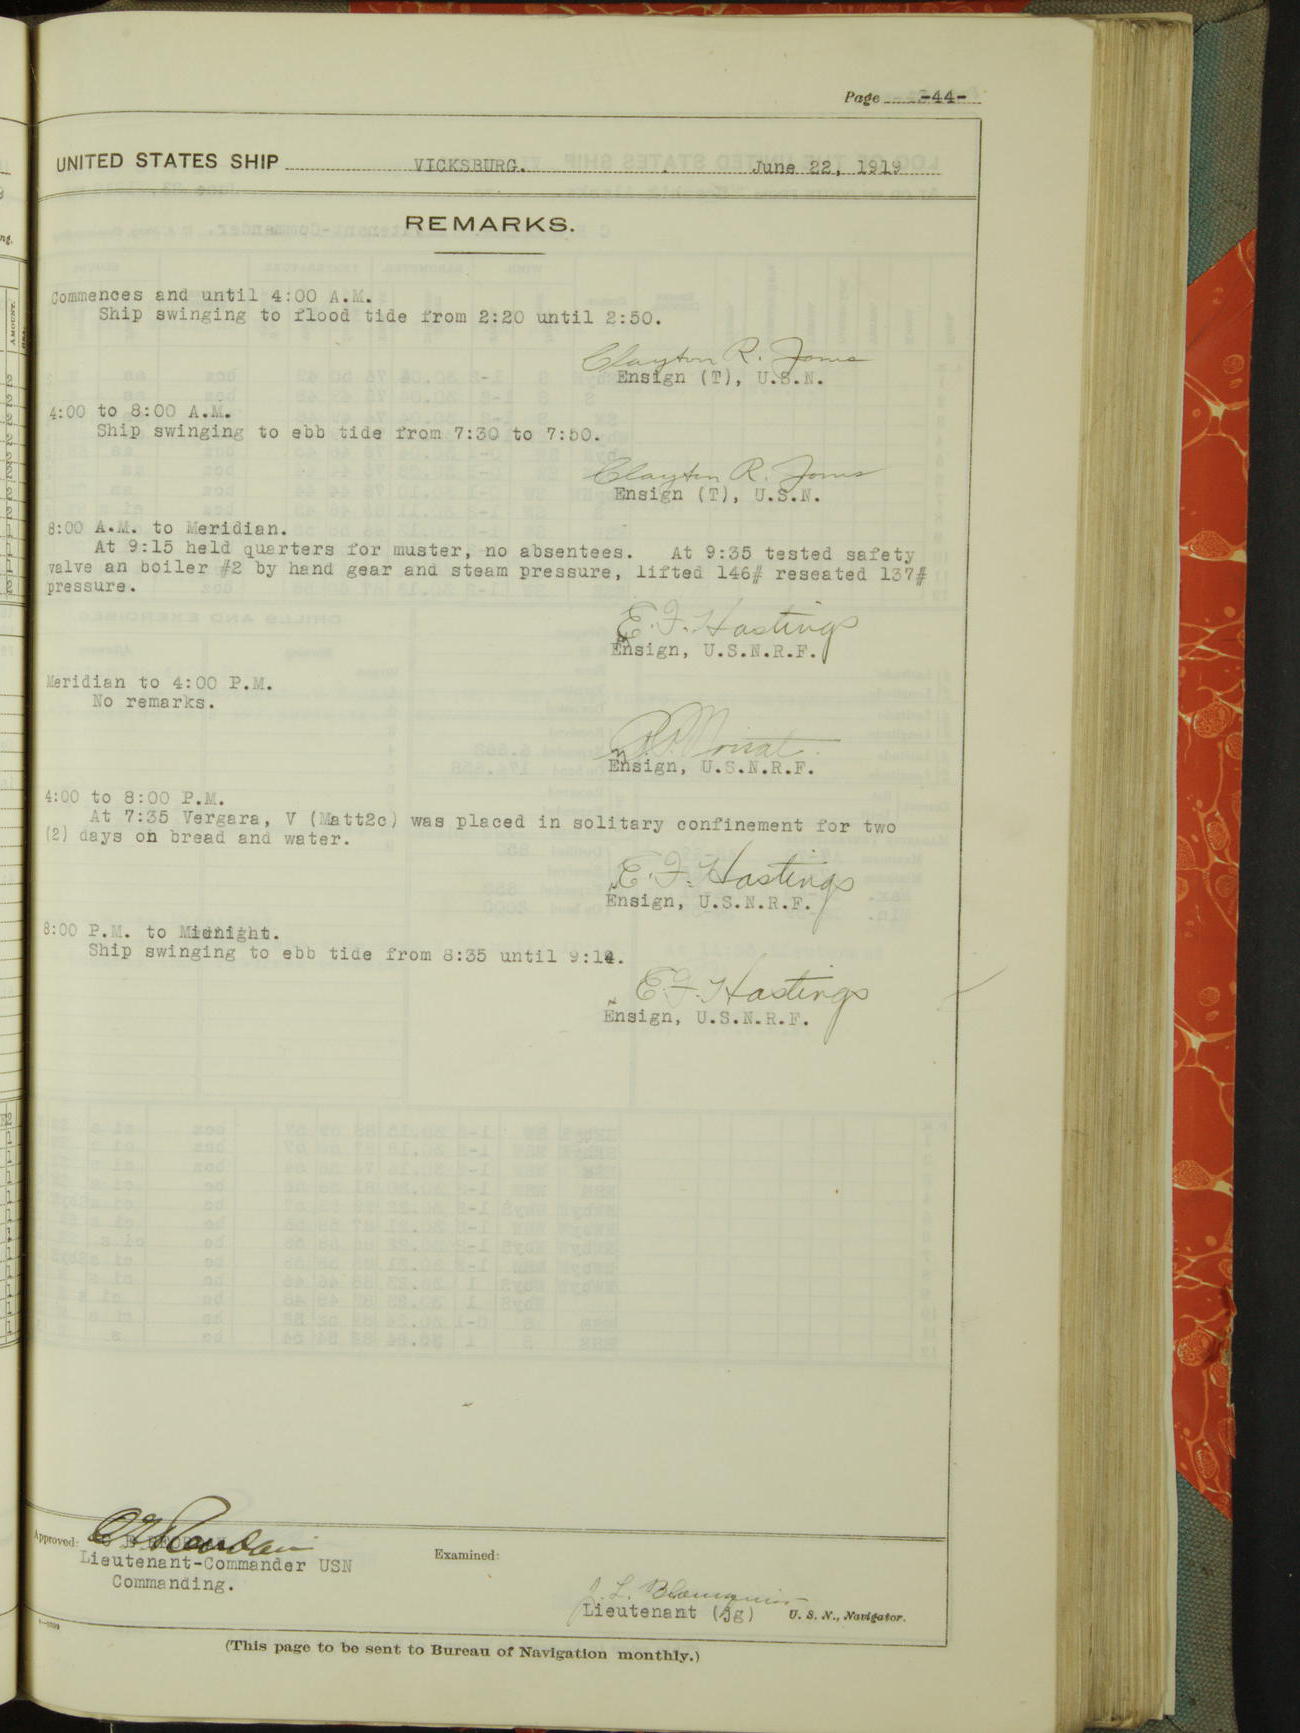 Page -44-
UNITED STATES SHIP VICKSBURG. June 22, 1919
REMARKS.
Commences and until 4:00 A.M.
Ship swinging to flood tide from 2:20 until 2:50.
Clayton R. Jones
Ensign (T), U.S.N.
4:00 to 8:00 A.M.
Ship swinging to ebb tide from 7:30 to 7:50.
Clayton R. Jones
Ensign (T), U.S.N.
8:00 A.M. to Meridian.
At 9:15 held quarters for muster, no absentees. At 9:35 tested safety
valve an boiler #2 by hand gear and steam pressure, lifted 146# reseated 137#
pressure.
E. F. Hastings
Ensign, U.S.N.R.F.
Meridian to 4:00 P.M.
No remarks.
Ensign, U.S.N.R.F.
4:00 to 8:00 P.M.
At 7:35 Vergara, V (Matt2c) was placed in solitary confinement for two
(2) days on bread and water.
E. F. Hastings
Ensign, U.S.N.R.F.
8:00 P.M. to Midnight.
Ship swinging to ebb tide from 8:35 until
E. F. Hastings
Ensign, U.S.N.R.F.
Approved:
Lieutenant-Commander USN
Commanding.
Examined:
J. L.
Lieutenant (jg) U. S. N., Navigator.
(This page to be sent to Bureau of Navigation monthly.)